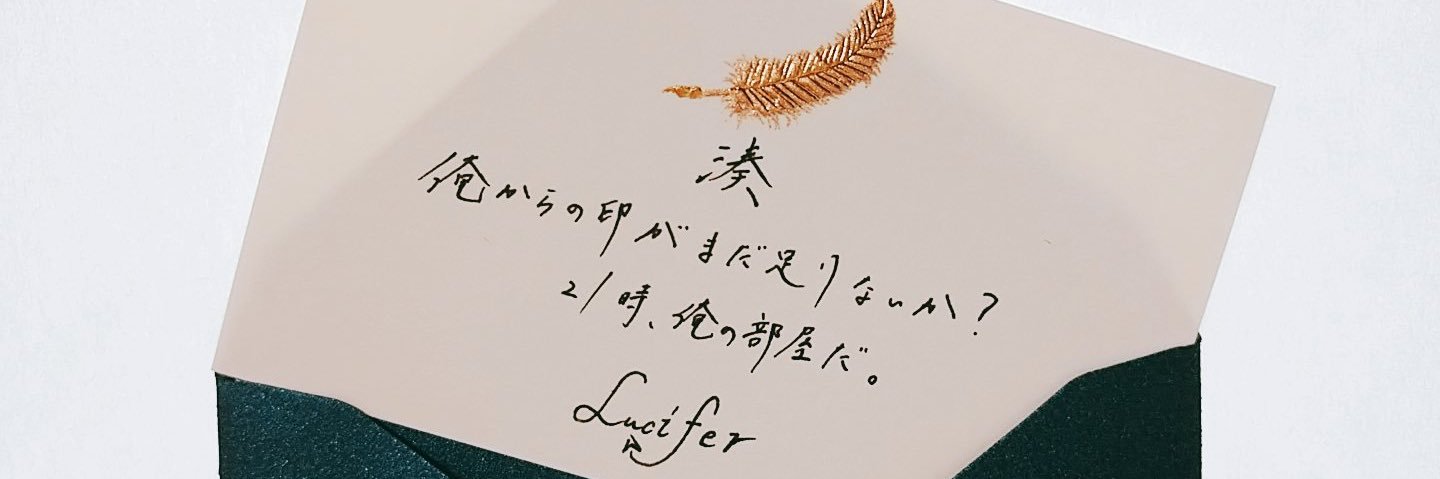 湊
俺からの印がまだ足りないか?
21時、俺の部屋だ。
Lucifer